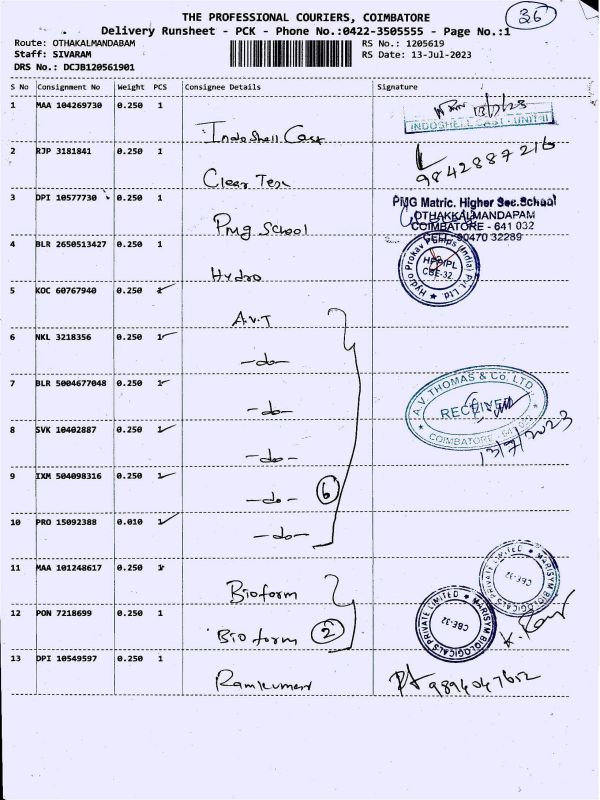 THE PROFESSIONAL COURIERS, COIMBATORE
36
Delivery Runsheet - PCK - Phone No.:0422-3505555 - Page No.:1
Route: OTHAKALMANDABAM
RS No.: 1205619
Staff: SIVARAM
RS Date: 13-Jul-2023
DRS No.: DCJB120561901
S No Consignment No Weight PCS Consignee Details Signature
1 MAA 104269730 0.250 1
13/7/23
INDOSHELL CAST UNIT II
Indoshell Cast
2 RJP 3181841 0.250 1
9842887216
Clear Tex
3 DPI 10577730 0.250 1
PMG Matric. Higher Sec.School
OTHAKKALMANDAPAM
COIMBATORE - 641 032
CELL: 90470 32289
PMG School
4 BLR 2650513427 0.250 1
Hydro Prokav Pumps (India) Pvt. Ltd.
HPPIPL
CBE-32
Hydro
5 KOC 60767940 0.250 1
A.V.T
6 NKL 3218356 0.250 1
-do-
7 BLR 5004677048 0.250 1
A.V. THOMAS & CO. LTD.
RECEIVED
COIMBATORE - 641 032
-do-
8 SVK 10402887 0.250 1
13/7/2023
-do-
9 IXM 504098316 0.250 1
-do- 6
10 PRO 15092388 0.010 1
-do-
11 MAA 101248617 0.250 1
MARISYM BIOLOGICALS PRIVATE LIMITED
CBE-32
Bioform
12 PON 7218699 0.250 1
MARISYM BIOLOGICALS PRIVATE LIMITED
CBE-32
Bioform 2
13 DPI 10549597 0.250 1
9894047652
Ramkumar